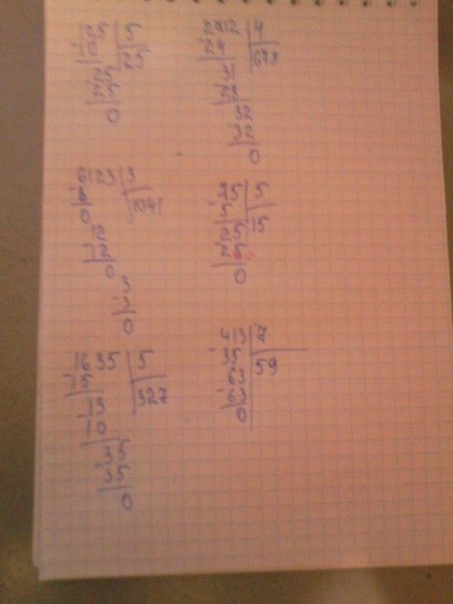 125 | 5
- 10 | 25
25
- 25
0
2712 | 4
- 24 | 678
31
- 28
32
- 32
0
6123 | 3
- 6
0
12
- 12
0
3
- 3
0
75 | 5
- 5 | 15
25
- 25
0
1635 | 5
- 15 | 327
13
- 10
35
- 35
0
413 | 7
- 35 | 59
63
- 63
0